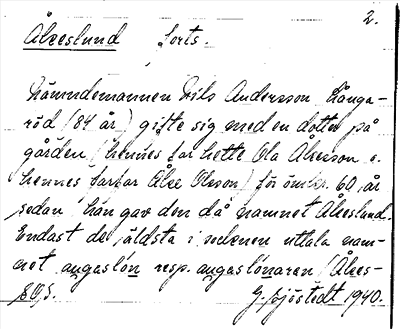 2.
Åkeslund forts.
Nämndemannen Nils Andersson Långa-
röd (84 år) gifte sig med en dotter på
gården (hennes far hette Ola Åkesson o.
hennes farfar Åke Olsson) för omkr. 60 år
sedan, han gav den då namnet Åkeslund.
Endast de äldsta i socknen uttala nam-
net angaslón resp. angaslónaren (Åkes-
G. Sjöstedt 1940.